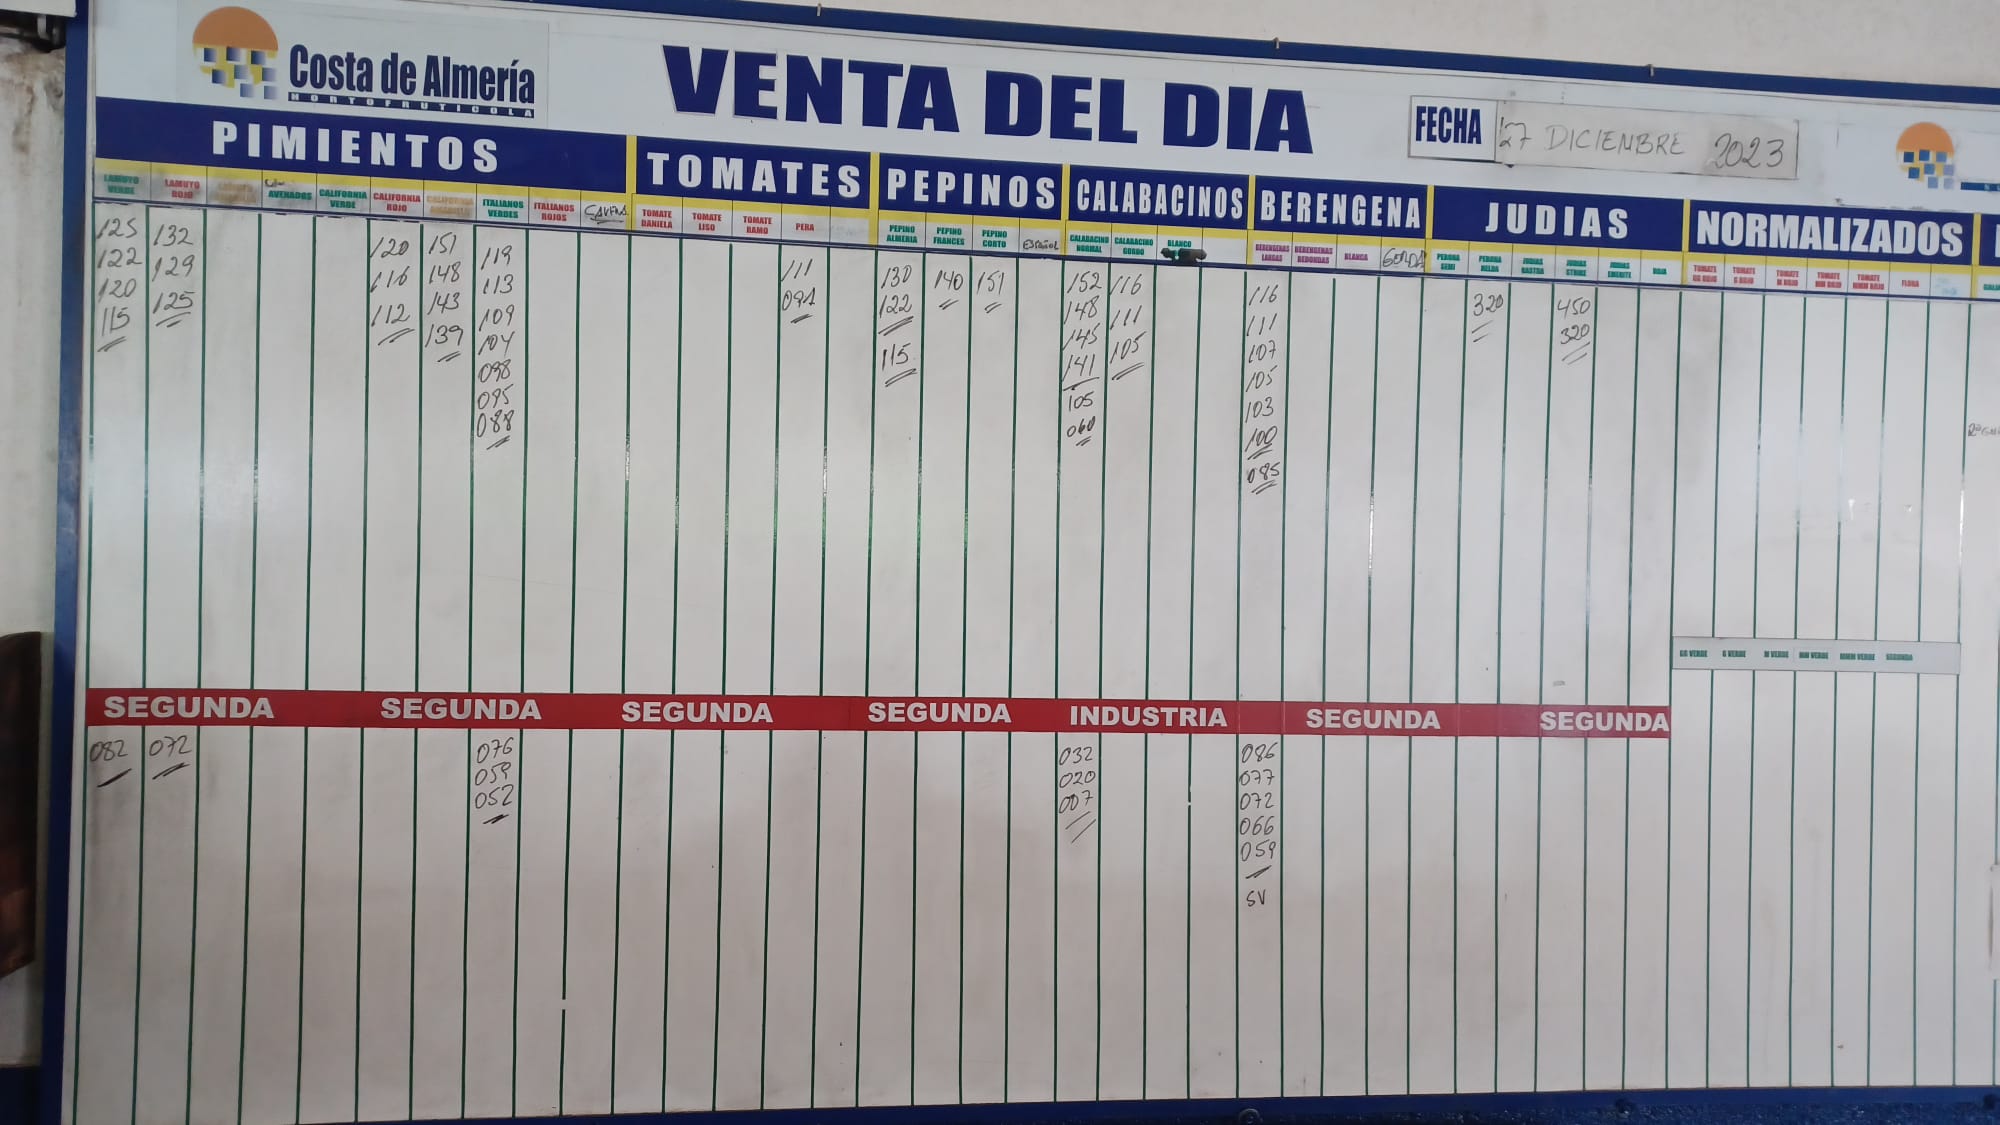 Costa de Almería
HORTOFRUTICOLA
VENTA DEL DIA
FECHA 27 DICIEMBRE 2023
PIMIENTOS
TOMATES
PEPINOS
CALABACINOS
BERENGENA
JUDIAS
NORMALIZADOS
LAMUYO VERDE
LAMUYO ROJO
AVENADOS
CALIFORNIA VERDE
CALIFORNIA ROJO
CALIFORNIA AMARILLO
ITALIANOS VERDES
ITALIANOS ROJOS
TOMATE DANIELA
TOMATE LISO
TOMATE RAMO
PERA
PEPINO ALMERIA
PEPINO FRANCES
PEPINO CORTO
ESPAÑOL
CALABACINO NORMAL
CALABACINO GORDO
BLANCO
BERENGENAS LARGAS
BERENGENAS REDONDAS
BLANCA
GORDA
PERONA SEMI
PERONA HELDA
JUDIAS RASTRA
JUDIAS STRIKE
JUDIAS EMERITE
ROJA
TOMATE GG ROJO
TOMATE G ROJO
TOMATE M ROJO
TOMATE MM ROJO
TOMATE MMM ROJO
FLORA
125
122
120
115
132
129
125
120
116
112
151
148
143
139
119
113
109
104
098
095
088
111
091
130
122
115
140
151
152
148
145
141
105
060
116
111
105
116
111
107
105
103
100
085
320
450
320
GG VERDE
G VERDE
M VERDE
MM VERDE
MMM VERDE
SEGUNDA
SEGUNDA
SEGUNDA
SEGUNDA
SEGUNDA
INDUSTRIA
SEGUNDA
SEGUNDA
082
072
076
059
052
032
020
007
086
077
072
066
059
SV